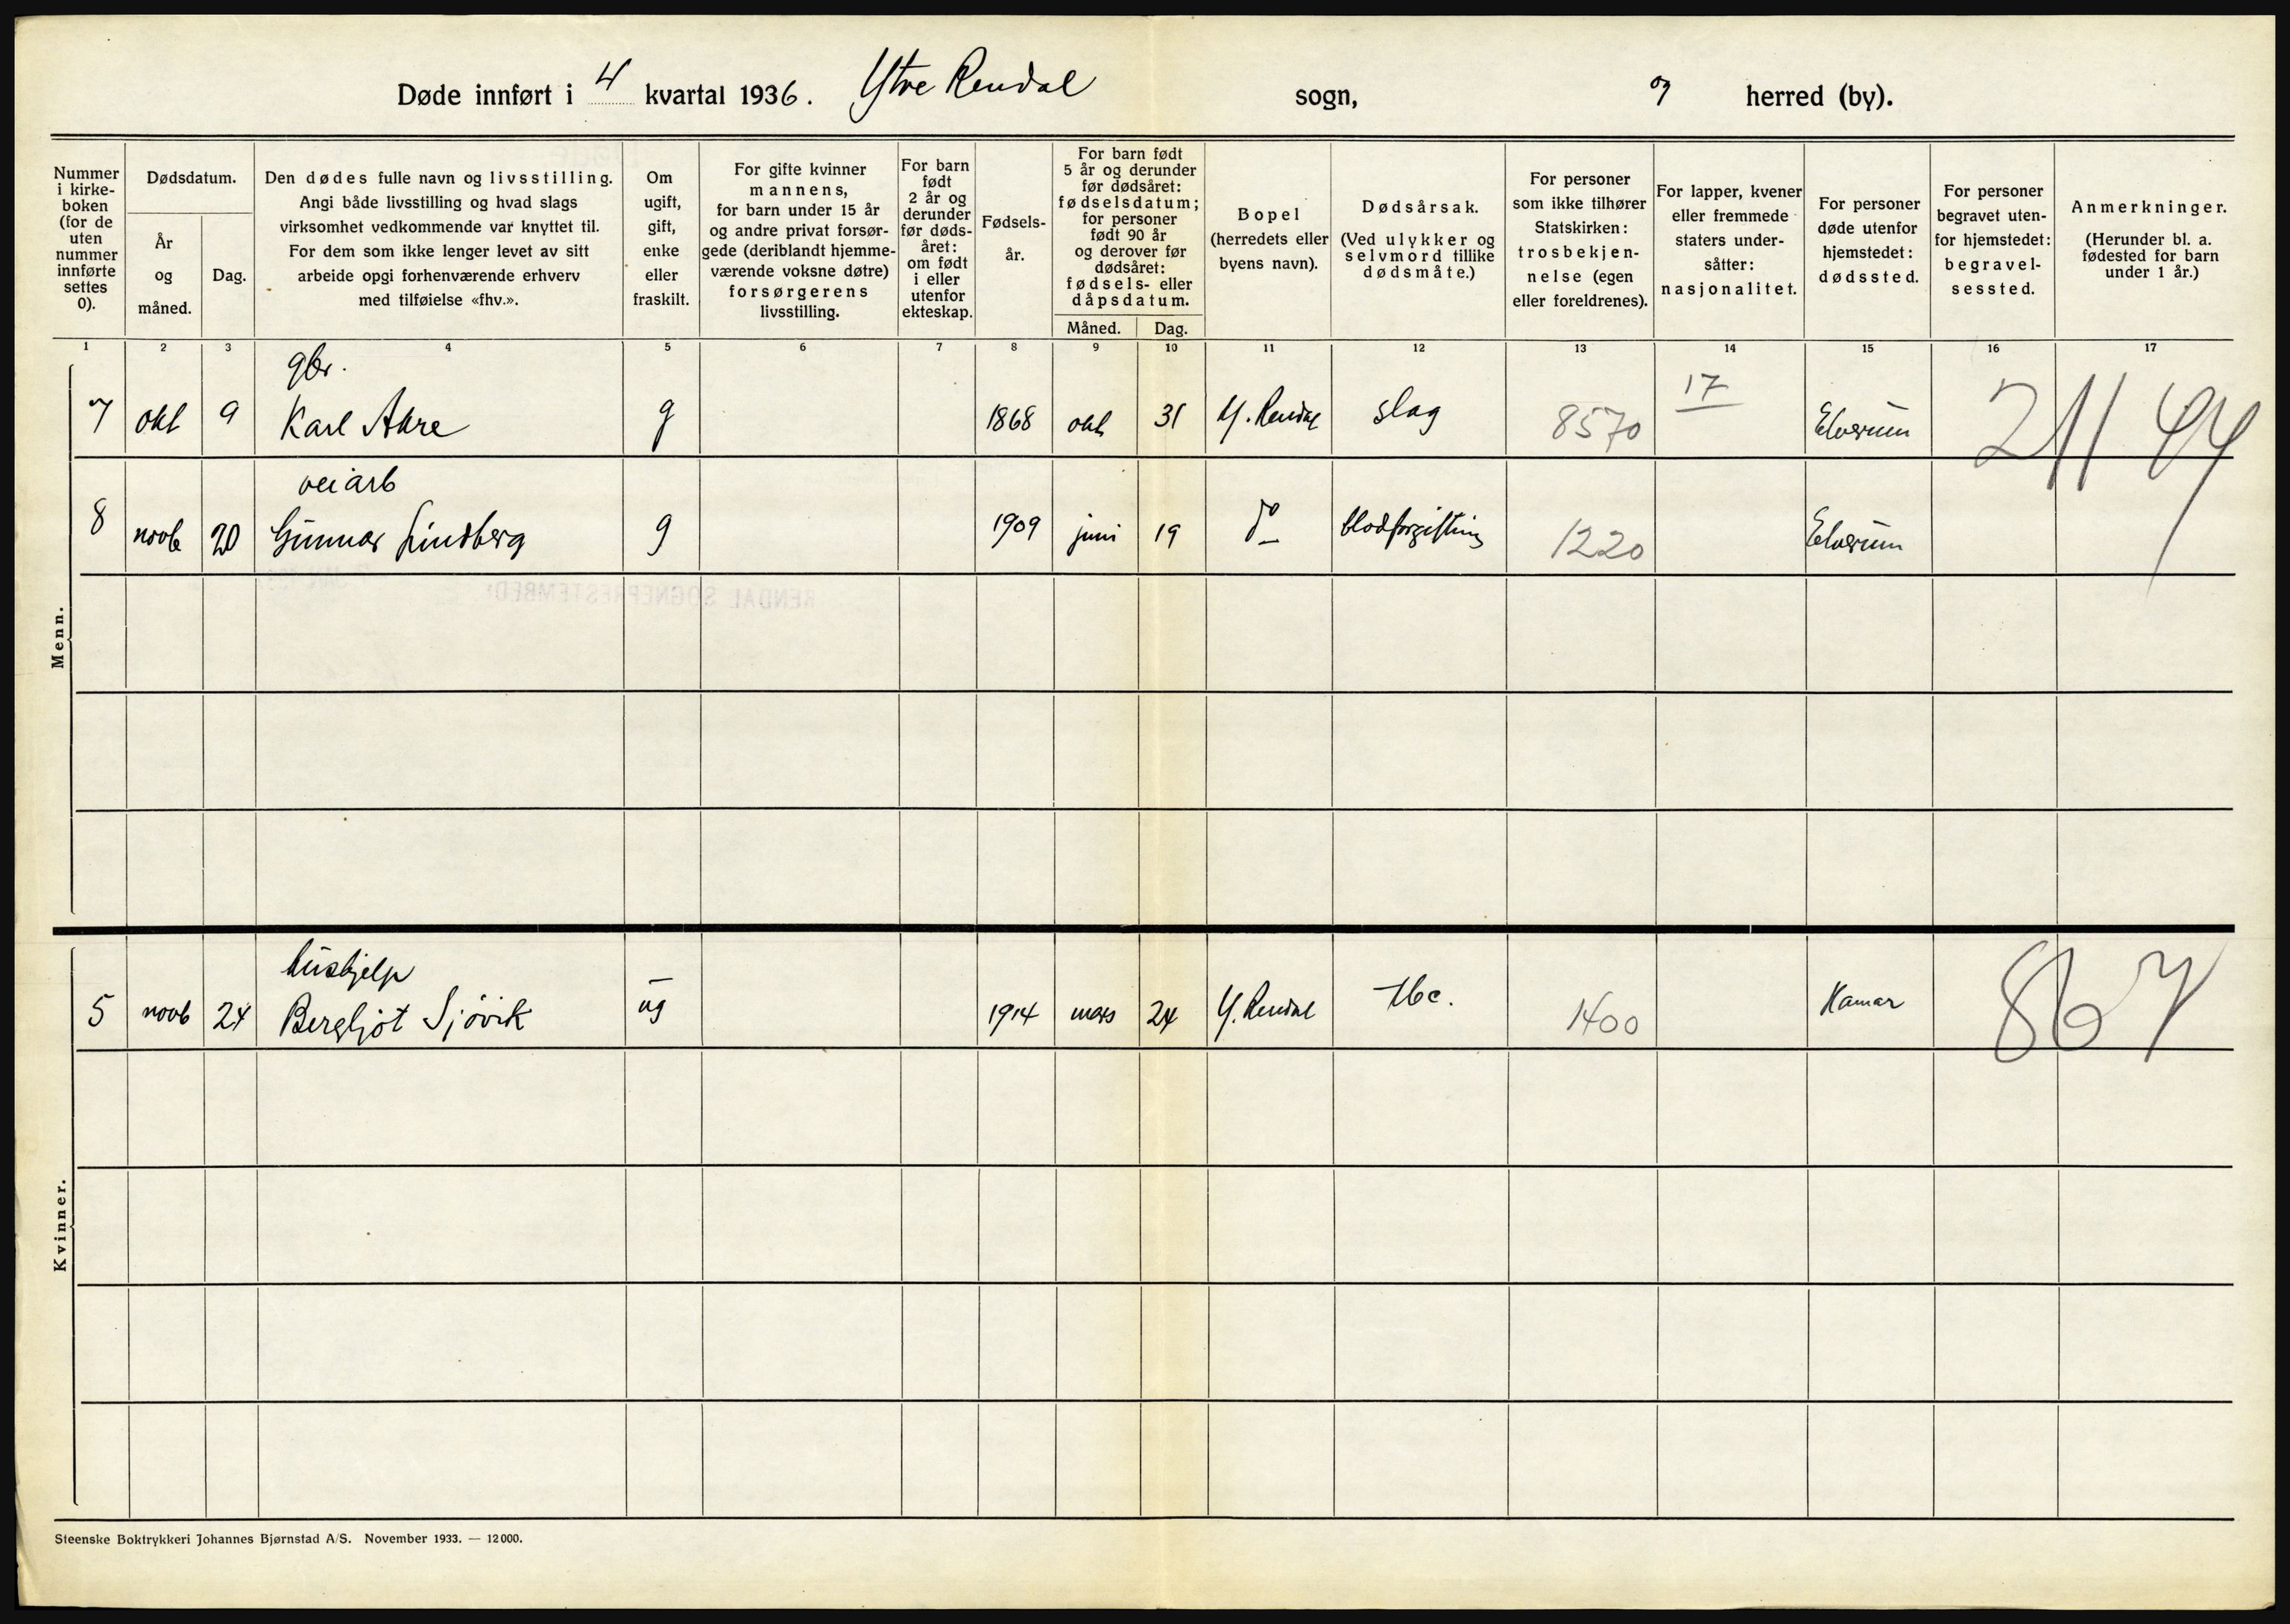 Døde innført i 4 kvartal 1936. Ytre Rendal sogn, og herred (by).
Nummer i kirke-boken (for de uten nummer innførte settes 0).
Dødsdatum.
År og måned.
Dag.
Den dødes fulle navn og livsstilling.
Angi både livsstilling og hvad slags
virksomhet vedkommende var knyttet til.
For dem som ikke lenger levet av sitt
arbeide opgi forhenværende erhverv
med tilføielse «fhv.».
Om ugift, gift, enke eller fraskilt.
For gifte kvinner
mannens,
for barn under 15 år
og andre privat forsør-
gede (deriblandt hjemme-
værende voksne døtre)
forsørgerens
livsstilling.
For barn
født
2 år og
derunder
før døds-
året:
om født
i eller
utenfor
ekteskap.
Fødsels-
år.
For barn født
5 år og derunder
før dødsåret:
fødselsdatum;
for personer
født 90 år
og derover før
dødsåret:
fødsels- eller
dåpsdatum.
Måned. Dag.
Bopel
(herredets eller
byens navn).
Dødsårsak.
(Ved ulykker og
selvmord tillike
dødsmåte.)
For personer
som ikke tilhører
Statskirken:
trosbekjen-
nelse (egen
eller foreldrenes).
For lapper, kvener
eller fremmede
staters under-
såtter:
nasjonalitet.
For personer
døde utenfor
hjemstedet:
dødssted.
For personer
begravet uten-
for hjemstedet:
begravel-
sessted.
Anmerkninger.
(Herunder bl. a.
fødested for barn
under 1 år.)
1 2 3 4 5 6 7 8 9 10 11 12 13 14 15 16 17
Menn.
gbr.
7 okt 9 Karl Akre g 1868 okt 31 Y. Rendal slag 8570 17 Elverum
veiarb
8 novb 20 Gunnar Lindberg g 1909 juni 19 do blodforgiftning 1220 Elverum
RENDAL SOGNEPRESTEMBED
Kvinner.
hushjelp
5 novb 24 Bergljot Sjövik ug 1914 mars 24 Y. Rendal tbc. 1400 Hamar 867
Steenske Boktrykkeri Johannes Bjørnstad A/S. November 1933. — 12000.